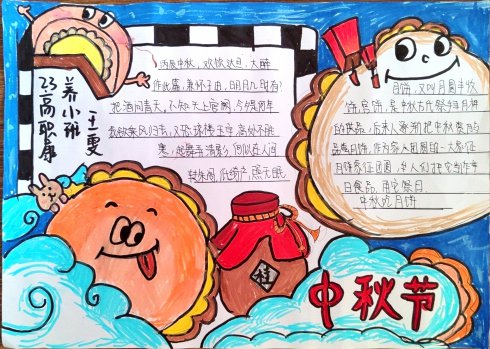 23高职康
养小班
王雯
丙辰中秋，欢饮达旦，大醉
作此篇，兼怀子由，明月几时有？
把酒问青天，不知天上宫阙，今夕是何年
我欲乘风归去，又恐琼楼玉宇，高处不胜
寒，起舞弄清影，何似在人间
转朱阁，低绮户，照无眠
月饼，又叫月团，丰收
饼，宫饼，是中秋古代祭拜月神
的供品，后来人逐渐把中秋赏月与
品尝月饼，作为家人团圆的一大象征
月饼象征团圆，
日食品，用它祭月
中秋吃月饼
酒
中秋节